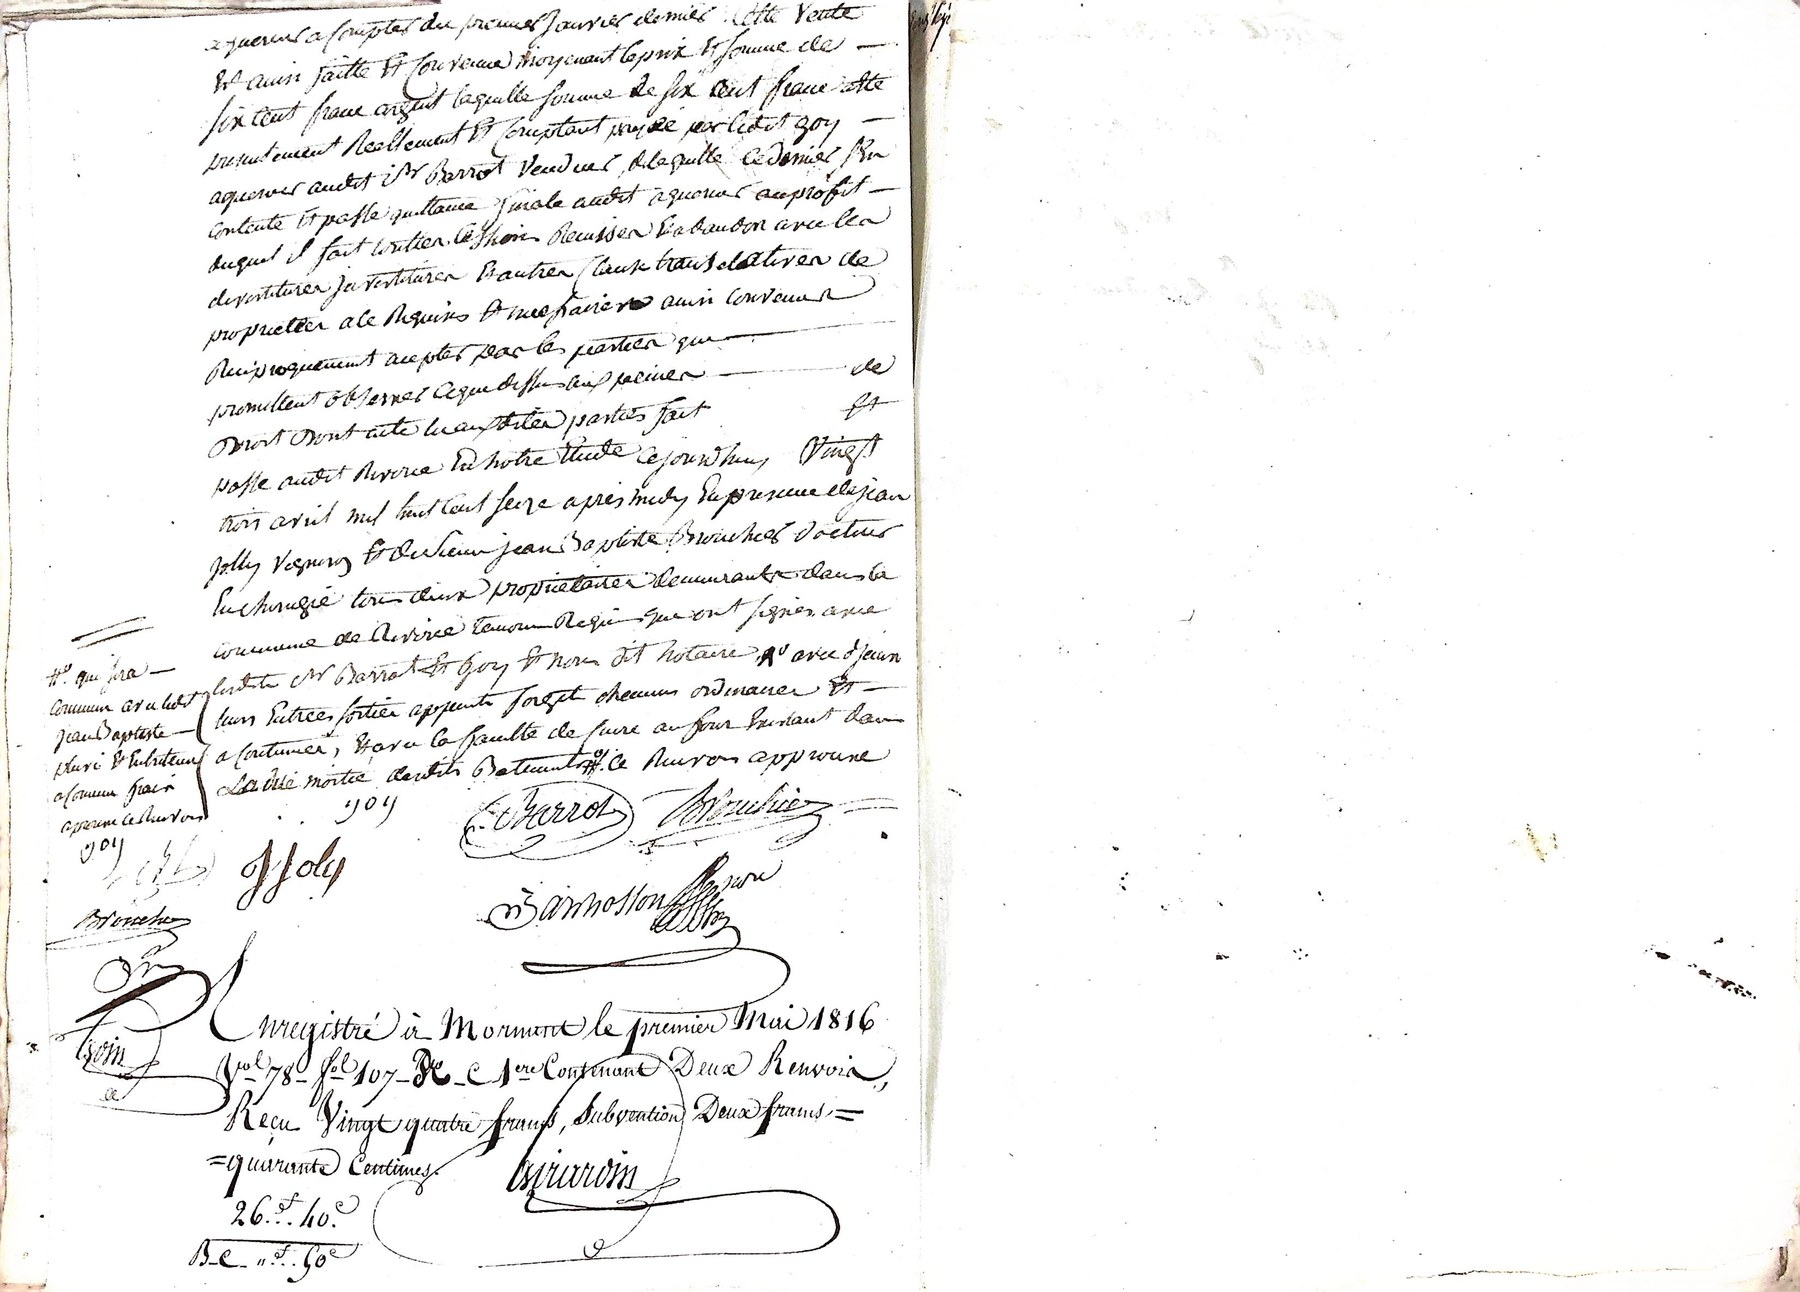 aquereur a Compter du premier Janvier dernier Cette Vente
Et ainsi faitte Et Convenue moyenant le prix Et Somme de —
Six Cent franc argent laquelle Somme de Six Cent franc a été
presentement Reellement Et Comptant payée par ledit goy —
aquereur audit Sr Barrot Vendeur, de laquelle Ce dernier Sen
Contente Et passe quittance finale audit aquereur au profit —
duquel il fait toutes Cessions Remisses Et abandon avec les
devestitures investitures Et autres Clauses translatives de
proprietées a Ce Requises Et necessaires ainsi Convenus
Reciproquement acceptes par les parties qui —
promettent observer Ce que dessus aux peines — de
Droit Dont acte lu auxdites parties fait Et
passé audit Riverie En notre Etude Cejourdhuy Vingt
trois avril mil huit Cent Seize après midy En presence de jean
jolly Vigneron Et de Sieur jean Baptiste Brouchier docteur
En chirurgie tous deux proprietaires demeurants dans la
commune de Riverie temoins Requis qui ont signés avec
lesdits Sr Barrot Et goy Et nous dit notaire, avec d jean
leurs Entrées sorties appents forget chemins ordinaires Et —
a Coutumés, Et avec la faculté de Cuire au four Existant dans
La dite moitié desdits Batiments #. Ce Renvoy approuvé
#. qui sera —
Commun avec ledit
Jean Baptiste —
pluri Et Entretenu
a Commun frais
aprouvé Ce Renvoy
goy
goy
Barrot
Brouchier
J Joly
Brouchier
Bannosson
Enregistré à Mornant le premier Mai 1816
Vol 78 - fol 107 - Ro - C 1ere Contenant Deux Renvois,
Reçu Vingt quatre francs, Subvention Deux francs =
= quarante Centimes.
Girardin
26.f. 40.c
B-C - "f. 50c